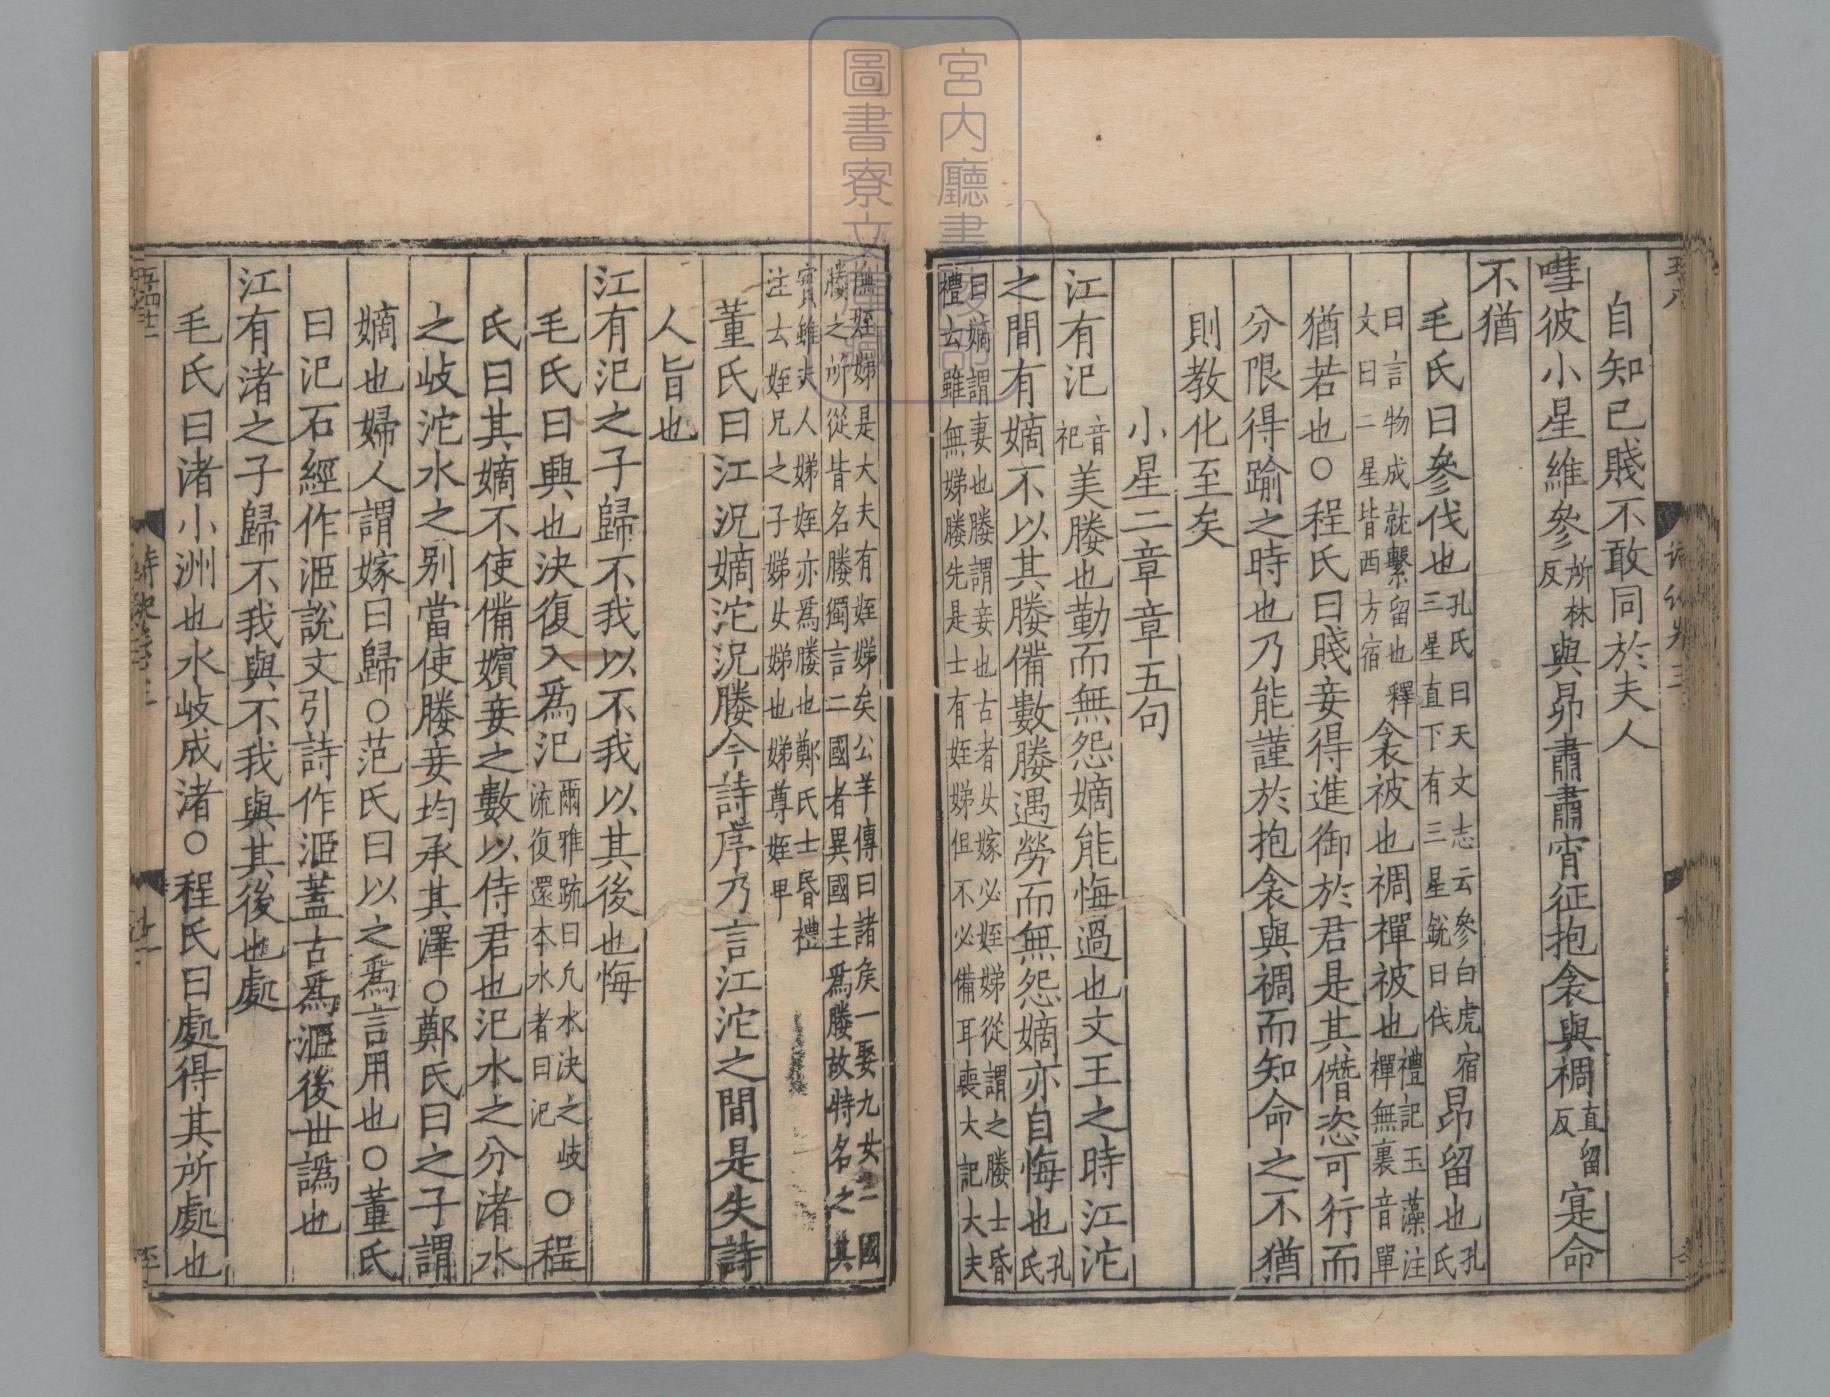 自知己賤不敢同於夫人
嘒彼小星維參所林反與昴肅肅宵征抱衾與裯直留反寔命
不猶
毛氏曰參伐也孔氏曰天文志云參白虎宿三星直下有三星銳曰伐昴留也孔氏
曰言物成就繫留也釋文曰二星皆西方宿衾被也裯襌被也禮記玉藻注襌無裏音單
猶若也○程氏曰賤妾得進御於君是其僭恣可行而
分限得踰之時也乃能謹於抱衾與裯而知命之不猶
則教化至矣
小星二章章五句
江有汜音祀美媵也勤而無怨嫡能悔過也文王之時江沱
之間有嫡不以其媵備數媵遇勞而無怨嫡亦自悔也孔氏
曰嫡謂妻也媵謂妾也古者女嫁必姪娣從謂之媵士昏
禮云雖無娣媵先是士有姪娣但不必備耳喪大記大夫
撫姪娣是大夫有姪娣矣公羊傳曰諸侯一娶九女二國
媵之所從皆名媵獨言二國者異國主為媵故特名之其
實雖夫人姪娣亦為媵也鄭氏士昏禮
注云姪兄之子娣女娣也娣尊姪卑
董氏曰江況嫡沱況媵今詩序乃言江沱之間是失詩
人旨也
江有汜之子歸不我以不我以其後也悔
毛氏曰興也決復入為汜爾雅疏曰凡水決之岐流復還本水者曰汜○程
氏曰其嫡不使備嬪妾之數以侍君也汜水之分渚水
之岐沱水之別當使媵妾均承其澤○鄭氏曰之子謂
嫡也婦人謂嫁曰歸○范氏曰以之為言用也○董氏
曰汜石經作洍說文引詩作洍蓋古為洍後世譌也
江有渚之子歸不我與不我與其後也處
毛氏曰渚小洲也水岐成渚○程氏曰處得其所處也
宮內廳書陵部
圖書寮文庫藏